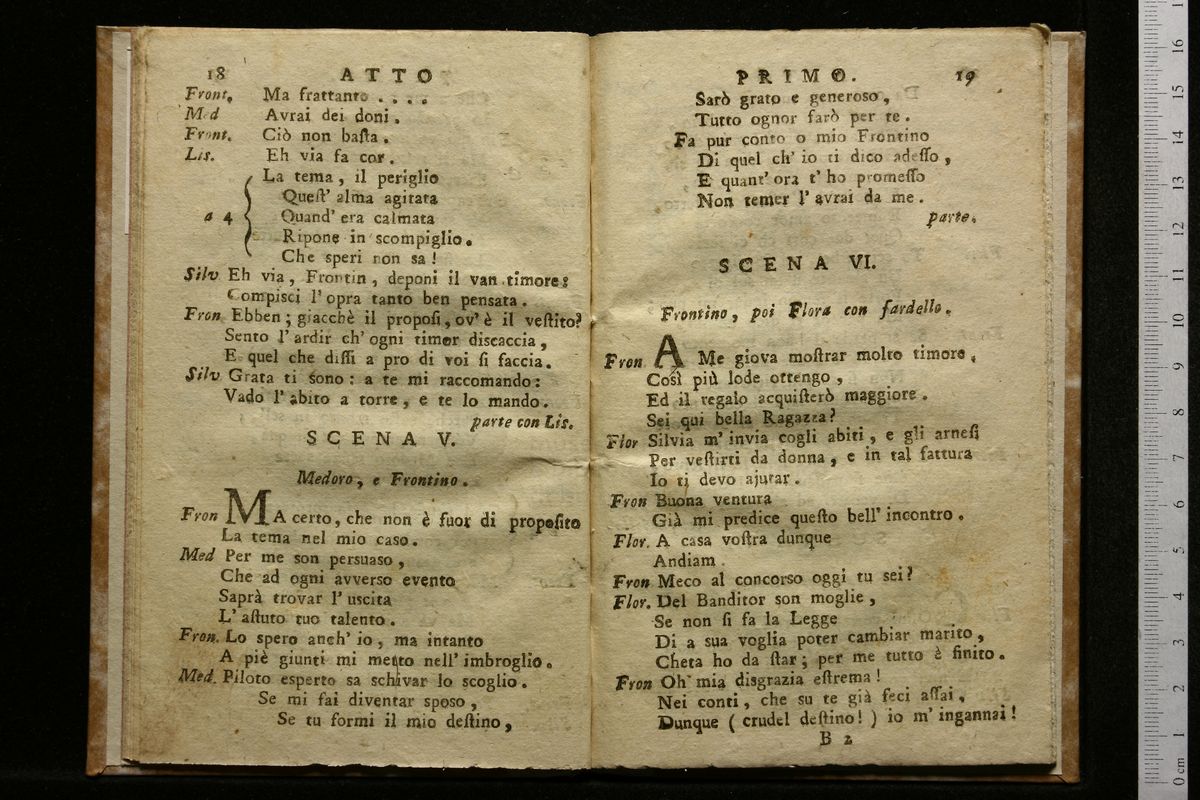 18 ATTO
Front. Ma frattanto . . . .
Med Avrai dei doni.
Front. Ciò non baſta.
Lis. Eh via fa cor.
La tema, il periglio
Queſt' alma agitata
a 4 Quand' era calmata
Ripone in scompiglio.
Che speri non sa!
Silv Eh via, Frontin, deponi il van timore:
Compisci l'opra tanto ben pensata.
Fron Ebben; giacchè il propoſi, ov'è il veſtito?
Sento l'ardir ch'ogni timor discaccia,
E quel che diſſi a pro di voi ſi faccia.
Silv Grata ti sono: a te mi raccomando:
Vado l'abito a torre, e te lo mando.
parte con Lis.
SCENA V.
Medoro, e Frontino.
Fron MA certo, che non è fuor di propoſito
La tema nel mio caso.
Med Per me son persuaso,
Che ad ogni avverso evento
Saprà trovar l'uscita
L'aſtuto tuo talento.
Fron. Lo spero anch' io, ma intanto
A piè giunti mi metto nell' imbroglio.
Med. Piloto esperto sa schivar lo scoglio.
Se mi fai diventar sposo,
Se tu formi il mio deſtino,
PRIMO. 19
Sarò grato e generoso,
Tutto ognor farò per te.
Fa pur conto o mio Frontino
Di quel ch' io ti dico adeſſo,
E quant' ora t' ho promeſſo
Non temer l' avrai da me.
parte.
SCENA VI.
Frontino, poi Flora con fardello.
Fron A Me giova moſtrar molto timore,
Così più lode ottengo,
Ed il regalo acquiſterò maggiore.
Sei qui bella Ragazza?
Flor Silvia m'invia cogli abiti, e gli arneſi
Per veſtirti da donna, e in tal fattura
Io ti devo ajutar.
Fron Buona ventura
Già mi predice queſto bell' incontro.
Flor. A casa voſtra dunque
Andiam.
Fron Meco al concorso oggi tu sei?
Flor. Del Banditor son moglie,
Se non ſi fa la Legge
Di a sua voglia poter cambiar marito,
Cheta ho da ſtar; per me tutto è finito.
Fron Oh' mia disgrazia eſtrema!
Nei conti, che su te già feci aſſai,
Dunque (crudel deſtino!) io m'ingannai!
B 2